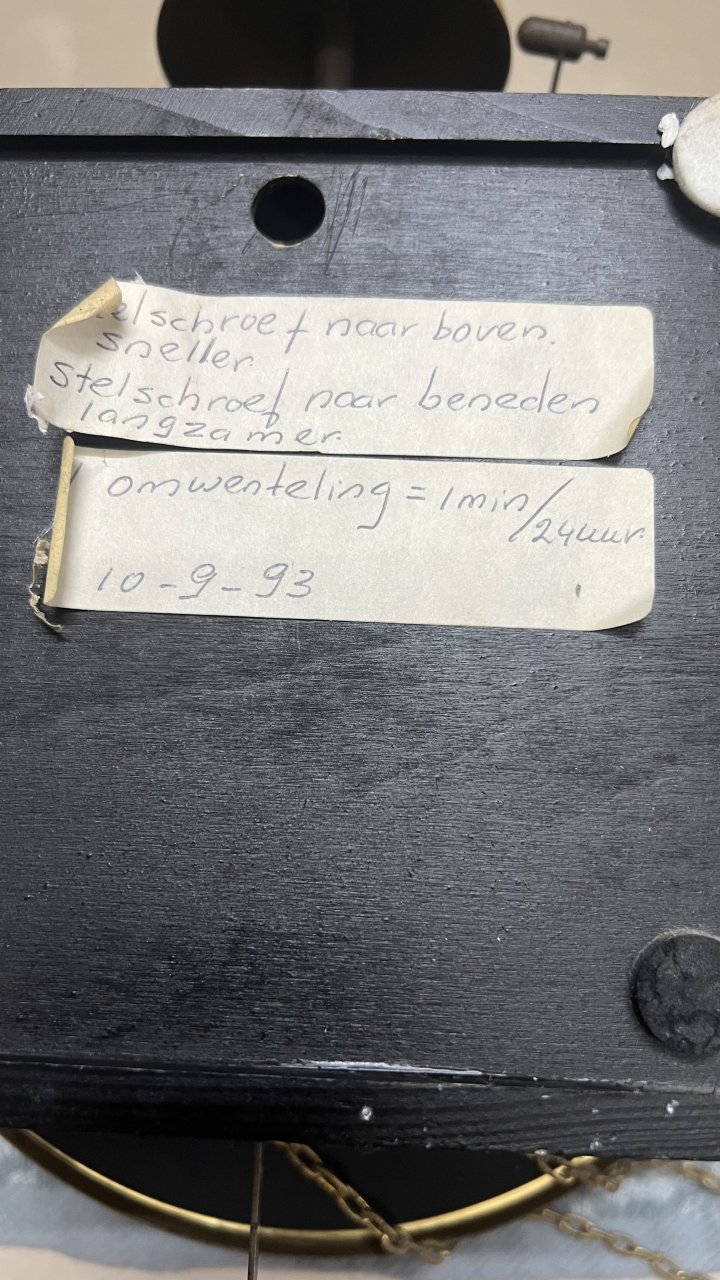 elschroef naar boven.
sneller.
Stelschroef naar beneden
langzamer.
1 omwenteling = 1min/24uur.
10-9-93